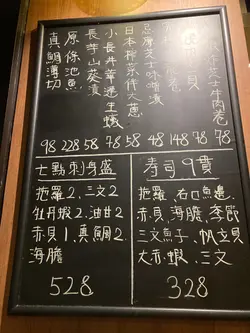 芝士牛肉卷
貝
忌廉芝士味噌漬
日本野菜伴大蔥
小長井華蓮生蠔
長芋山葵漬
原條池魚
真鯛薄切
98 228 58 78 58 48 148 78 78
七點刺身盛
拖羅2、三文2
牡丹蝦2、油甘2
赤貝1、真鯛2、
海膽
528
寿司9貫
拖羅、右口魚邊、
赤貝、海膽、季節
三文魚子、帆立貝
大赤、蝦、三文
328